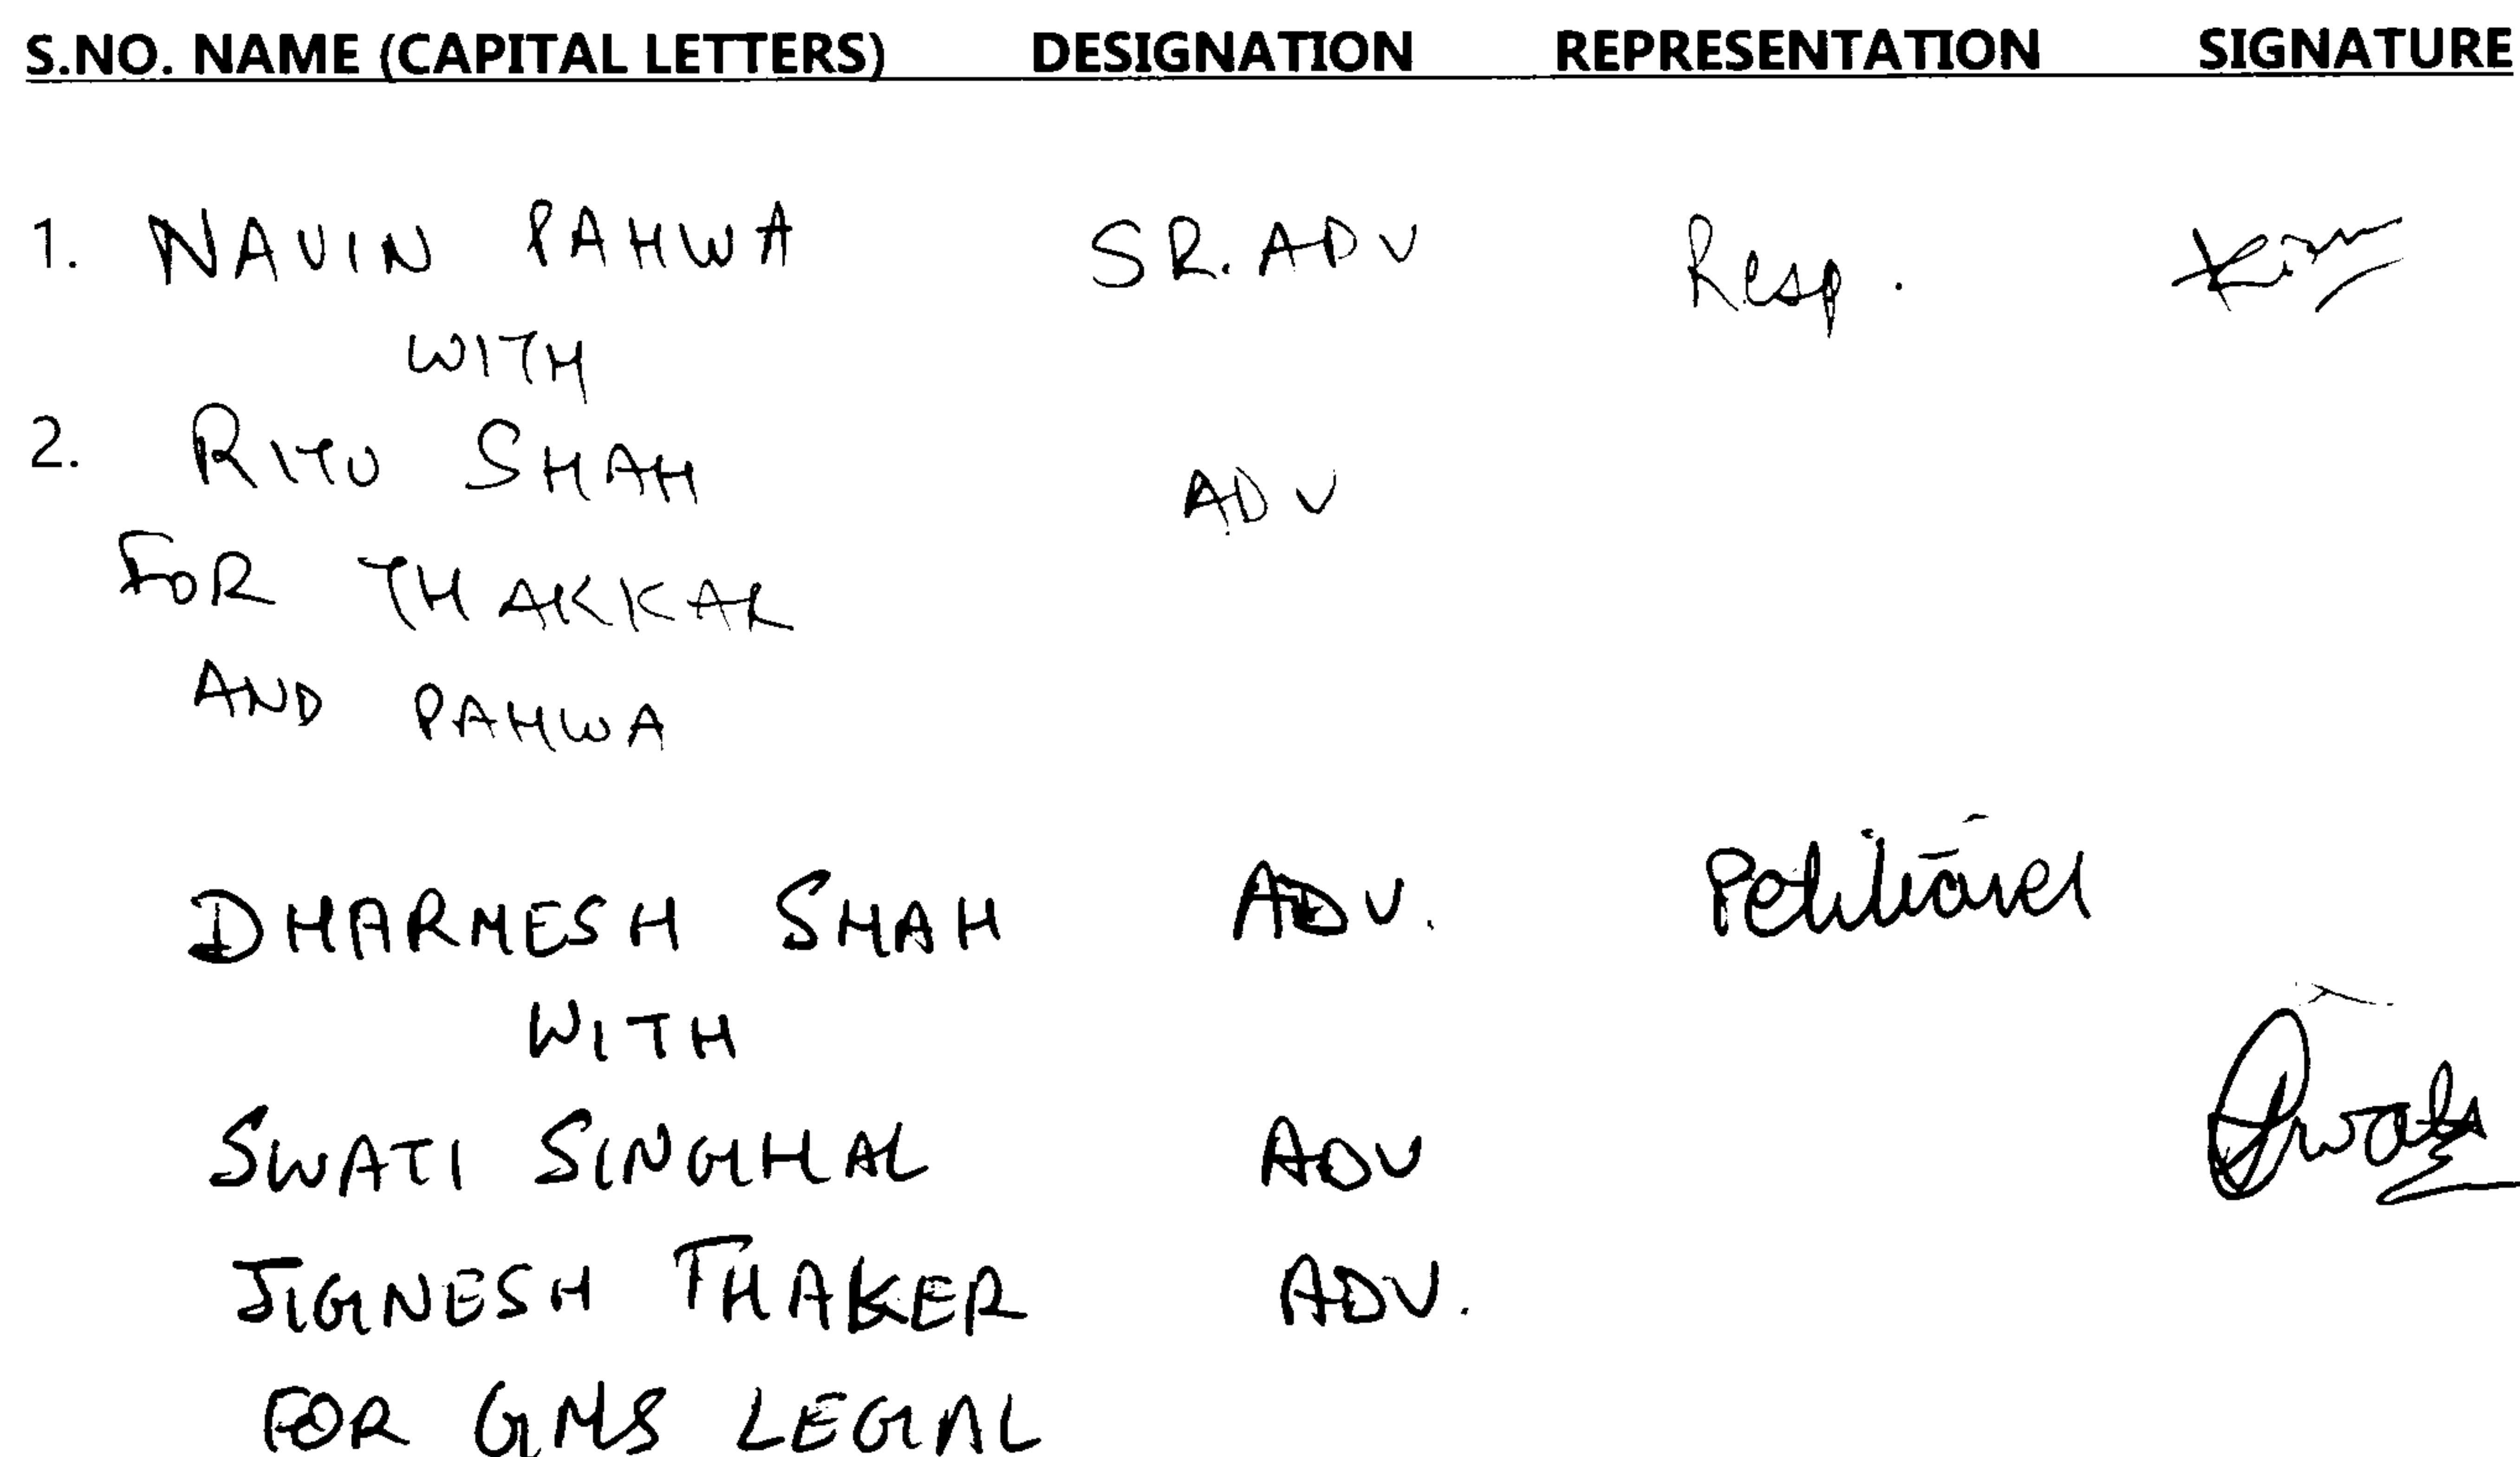 S.NO. NAME (CAPITAL LETTERS) DESIGNATION REPRESENTATION SIGNATURE
1. NAVIN PAHWA SR. ADV Resp.
WITH
2. RITU SHAH ADV
FOR THAKKAR
AND PAHWA
DHARMESH SHAH ADV. Petitioner
WITH
SWATI SINGHAL ADV Swati
JIGNESH THAKER ADV.
FOR GMS LEGAL